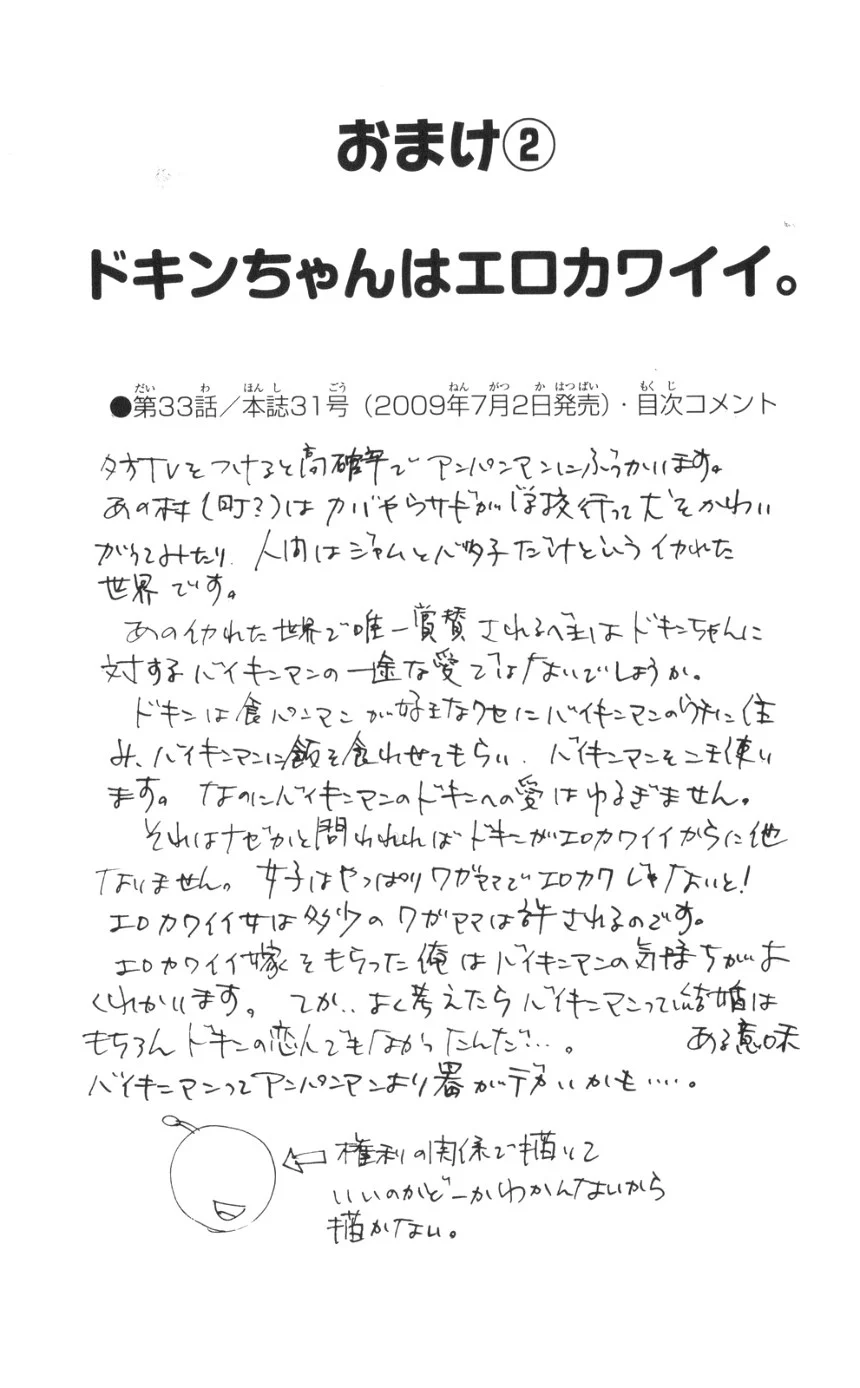 おまけ②
ドキンちゃんはエロカワイイ。
●第33話／本誌31号（2009年7月2日発売）・目次コメント
夕方TVをつけると高確率でアンパンマンにぶつかります。
あの村（町？）はカバやらウサギが学校行って犬をかわい
がってみたり、人間はジャムとバタ子だけというイカれた
世界です。
あのイカれた世界で唯一賞賛されるべきはドキンちゃんに
対するバイキンマンの一途な愛ではないでしょうか。
ドキンは食パンマンが好きなクセにバイキンマンの家に住
み、バイキンマンに飯を食わせてもらい、バイキンマンをコキ使い
ます。なのにバイキンマンのドキンへの愛はゆるぎません。
それはナゼかと問われればドキンがエロカワイイからに他
なりません。女子はやっぱりワガママでエロカワじゃないと！
エロカワイイ女は多少のワガママは許されるのです。
エロカワイイ嫁をもらった俺はバイキンマンの気持ちがよ
くわかります。てか‥よく考えたらバイキンマンって結婚は
もちろんドキンの恋人でもなかったんだ…。 ある意味
バイキンマンってアンパンマンより器がデカいかも……。
権利の関係で描いて
いいのかどーかわかんないから
描かない。